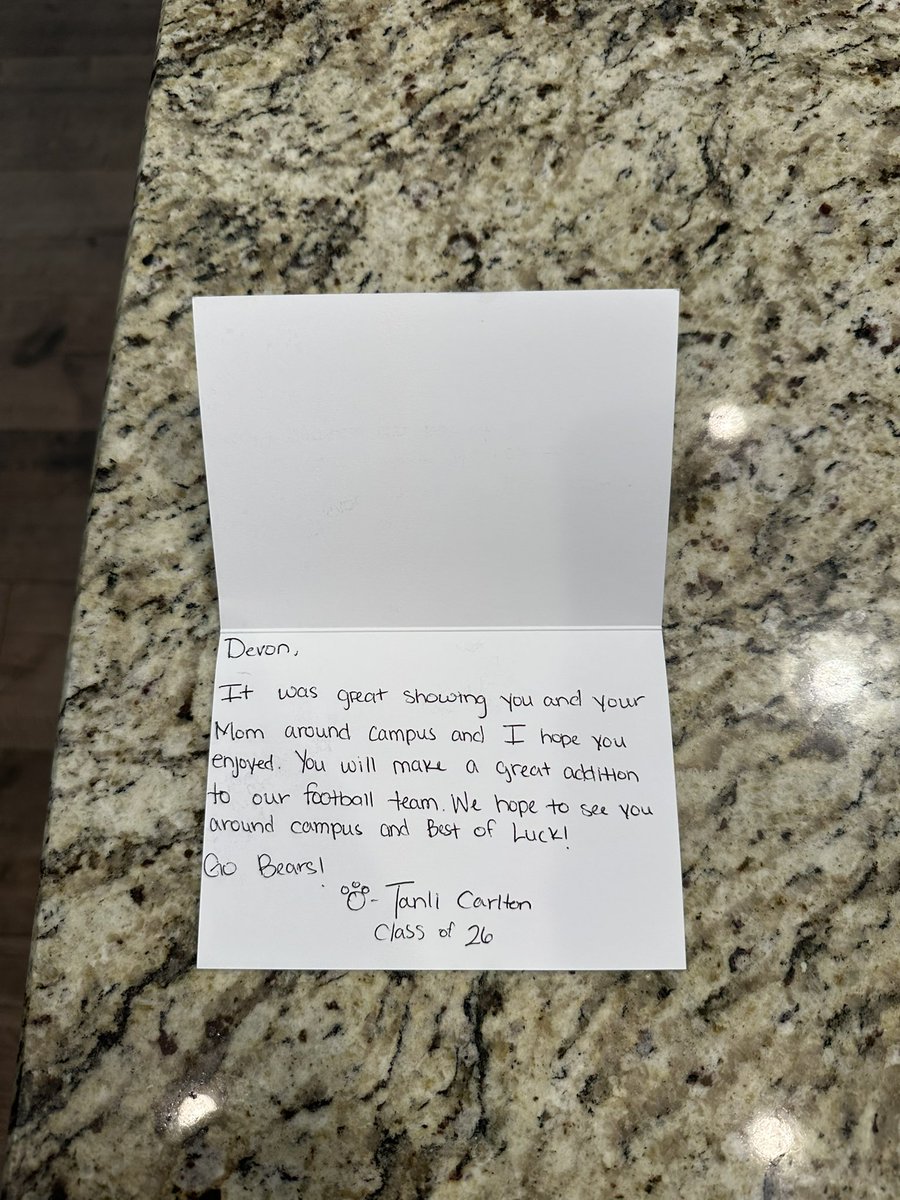 Devon,
It was great showing you and your
Mom around campus and I hope you
enjoyed. You will make a great addition
to our football team. We hope to see you
around campus and Best of Luck!
Go Bears!
- Tanli Carlton
Class of 26